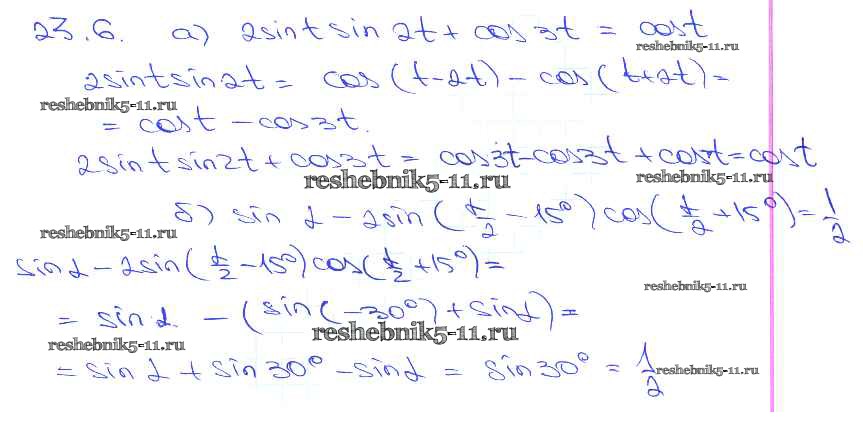 23.6. а) 2sint sin 2t + cos 3t = cost
reshebnik5-11.ru
2sint sin2t = cos (t-2t) - cos (t+2t) =
reshebnik5-11.ru
= cost - cos3t.
2sint sin2t + cos3t = cos3t - cos3t + cost = cost
reshebnik5-11.ru reshebnik5-11.ru
б) sin α - 2sin (α/2 - 15°) cos (α/2 + 15°) = 1/2
reshebnik5-11.ru
sinα - 2sin (α/2 - 15°) cos (α/2 + 15°) =
reshebnik5-11.ru
= sin α - (sin (-30°) + sinα) =
reshebnik5-11.ru reshebnik5-11.ru
= sin α + sin 30° - sinα = sin 30° = 1/2
reshebnik5-11.ru